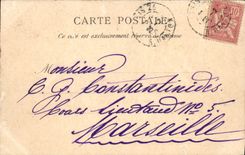 CARTE POSTALE
Ce côté est exclusivement réservé à l'adresse
Monsieur
C. G. Constantinidès
Cours Lieutaud No 5.
Marseille